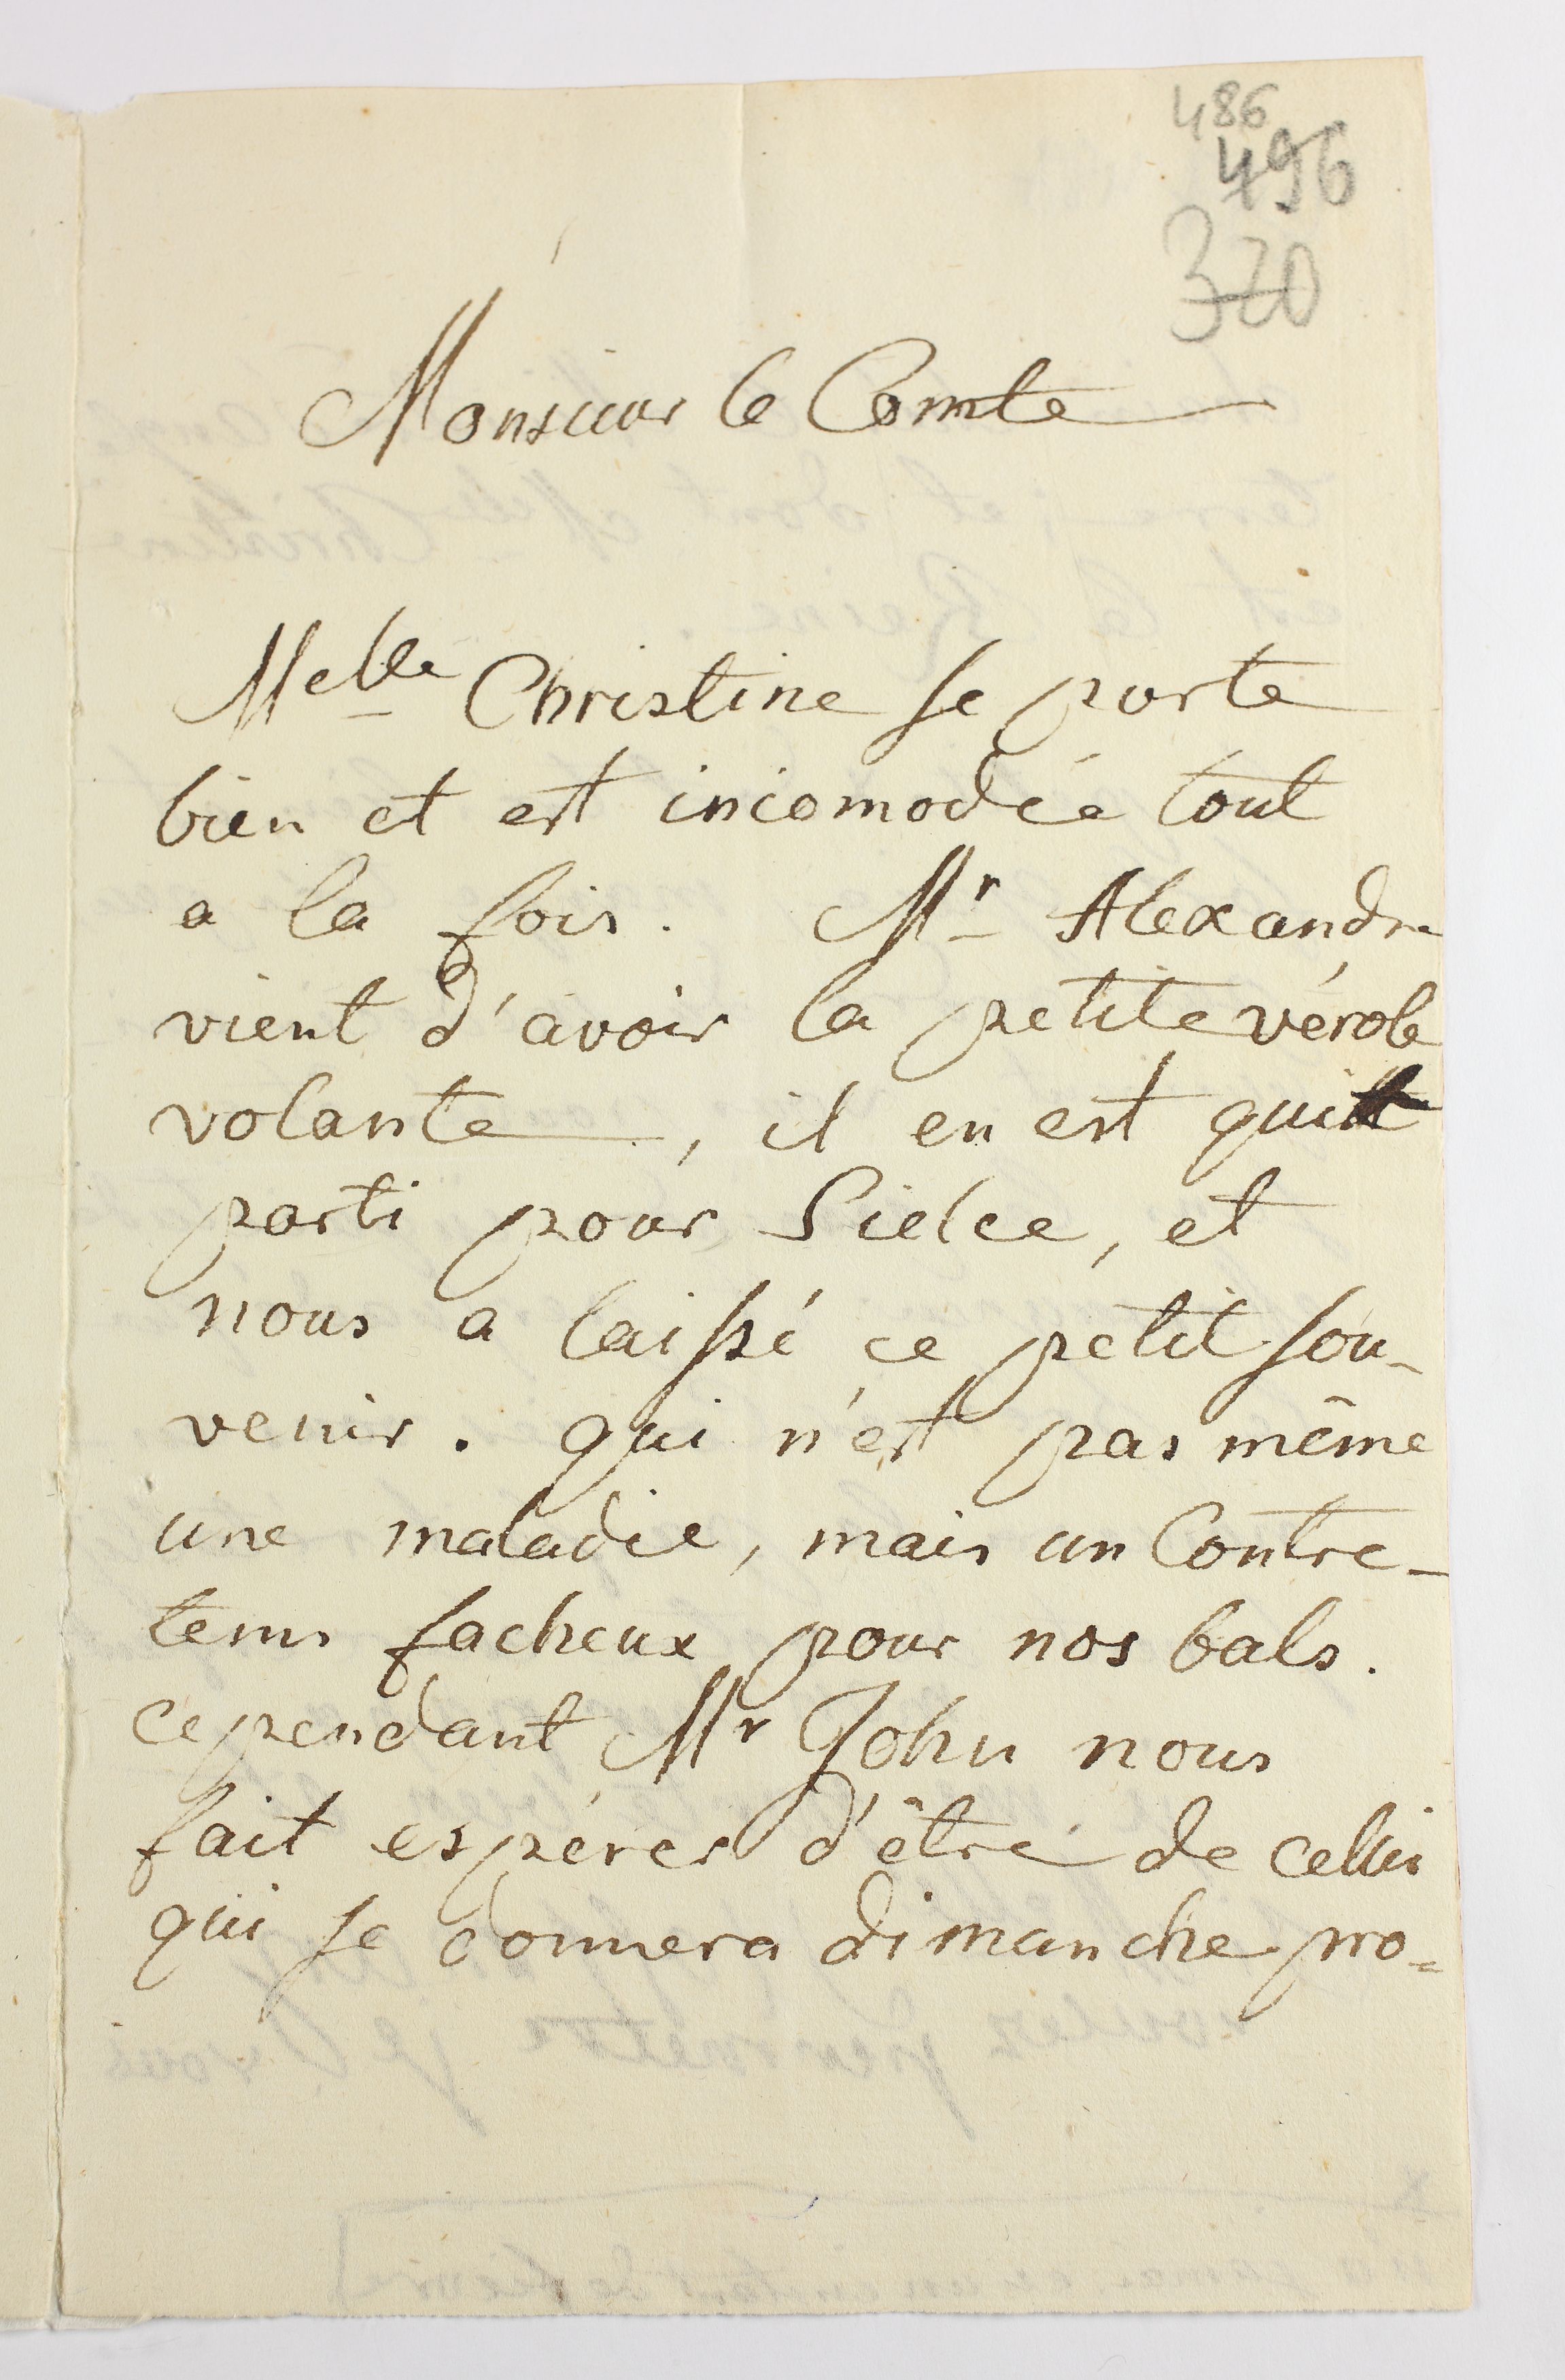 486
496
320
Monsieur le Comte
Melle Christine se porte
bien et est incomodée tout
a la fois. Mr Alexandre
vient d'avoir la petite vérole
volante, il en est quitt
parti pour Sielce, et
nous a laissé ce petit sou-
venir. qui n'est pas même
une maladie, mais un Contre-
tems facheux pour nos bals.
cependant Mr John nous
fait espérer d'être de cellui
qui se donnera dimanche pro=